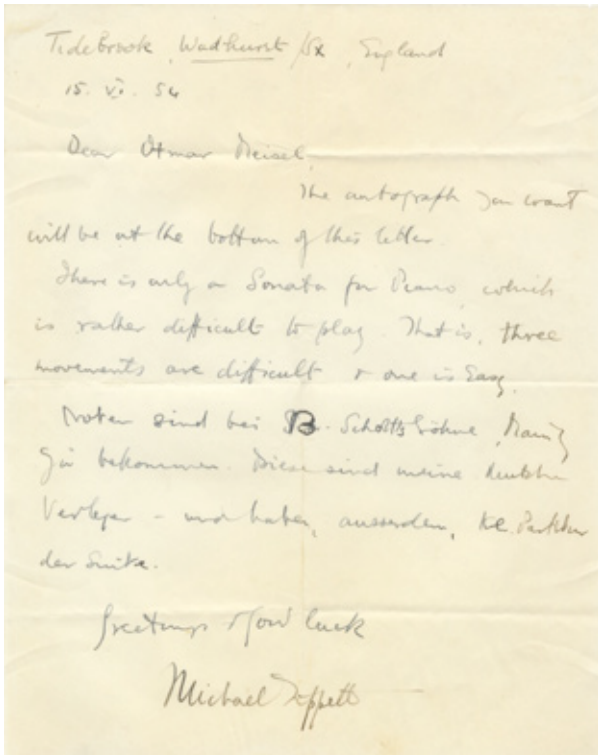 Tidebrook, Wadhurst /Sx, England
15. VI. 54
Dear Otmar Meisel,
The autograph you want
will be at the bottom of this letter.
There is only a Sonata for Piano, which
is rather difficult to play. That is, three
movements are difficult & one is Easy.
Noten sind bei B. Schotts Söhne, Mainz
zu bekommen. Diese sind meine deutschen
Verleger – und haben, ausserdem, Kl. Partitur
der Suite.
Greetings & good luck
Michael Tippett